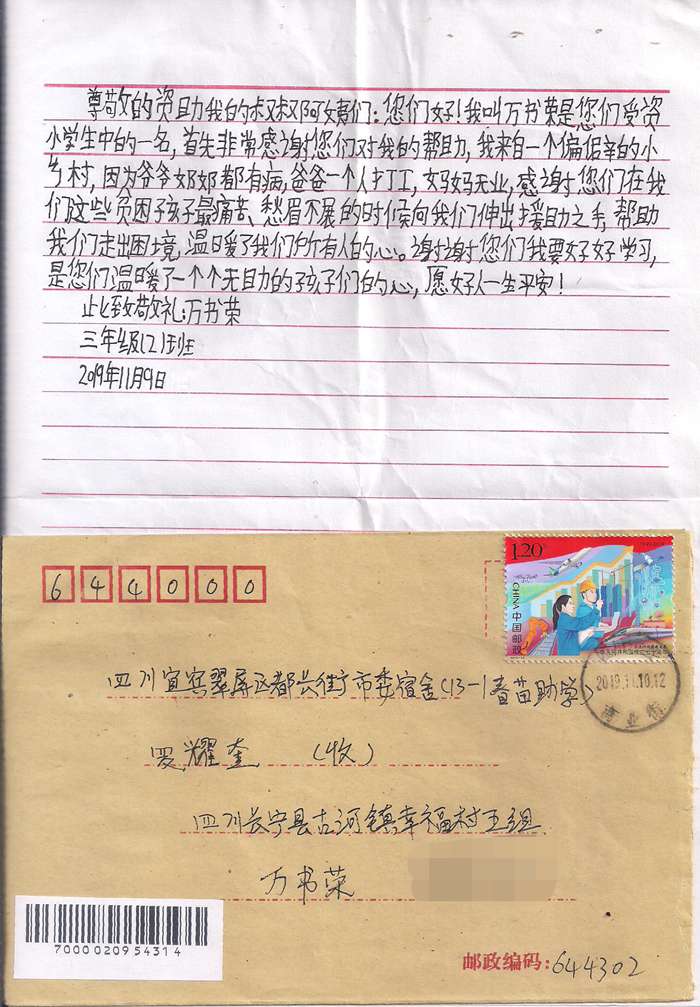 尊敬的资助我的叔叔阿姨们：您们好！我叫万书荣是您们受资
小学生中的一名，首先非常感谢您们对我的帮助，我来自一个偏僻的小
乡村，因为爷爷奶奶都有病，爸爸一个人打工，妈妈无业，感谢您们在我
们这些贫困孩子最痛苦、愁眉不展的时候向我们伸出援助之手，帮助
我们走出困境，温暖了我们所有人的心。谢谢您们我要好好学习，
是您们温暖了一个个无助的孩子们的心，愿好人一生平安！
此致敬礼：万书荣
三年级(2)班
2019年11月9日
644000
1.20
CHINA
中国邮政
四川宜宾翠屏区都长街市委宿舍(13-1春苗助学)
2019.11.10.12
商业街
罗耀奎 (收)
四川长宁县古河镇幸福村五组
万书荣
7000020954314
邮政编码:644302